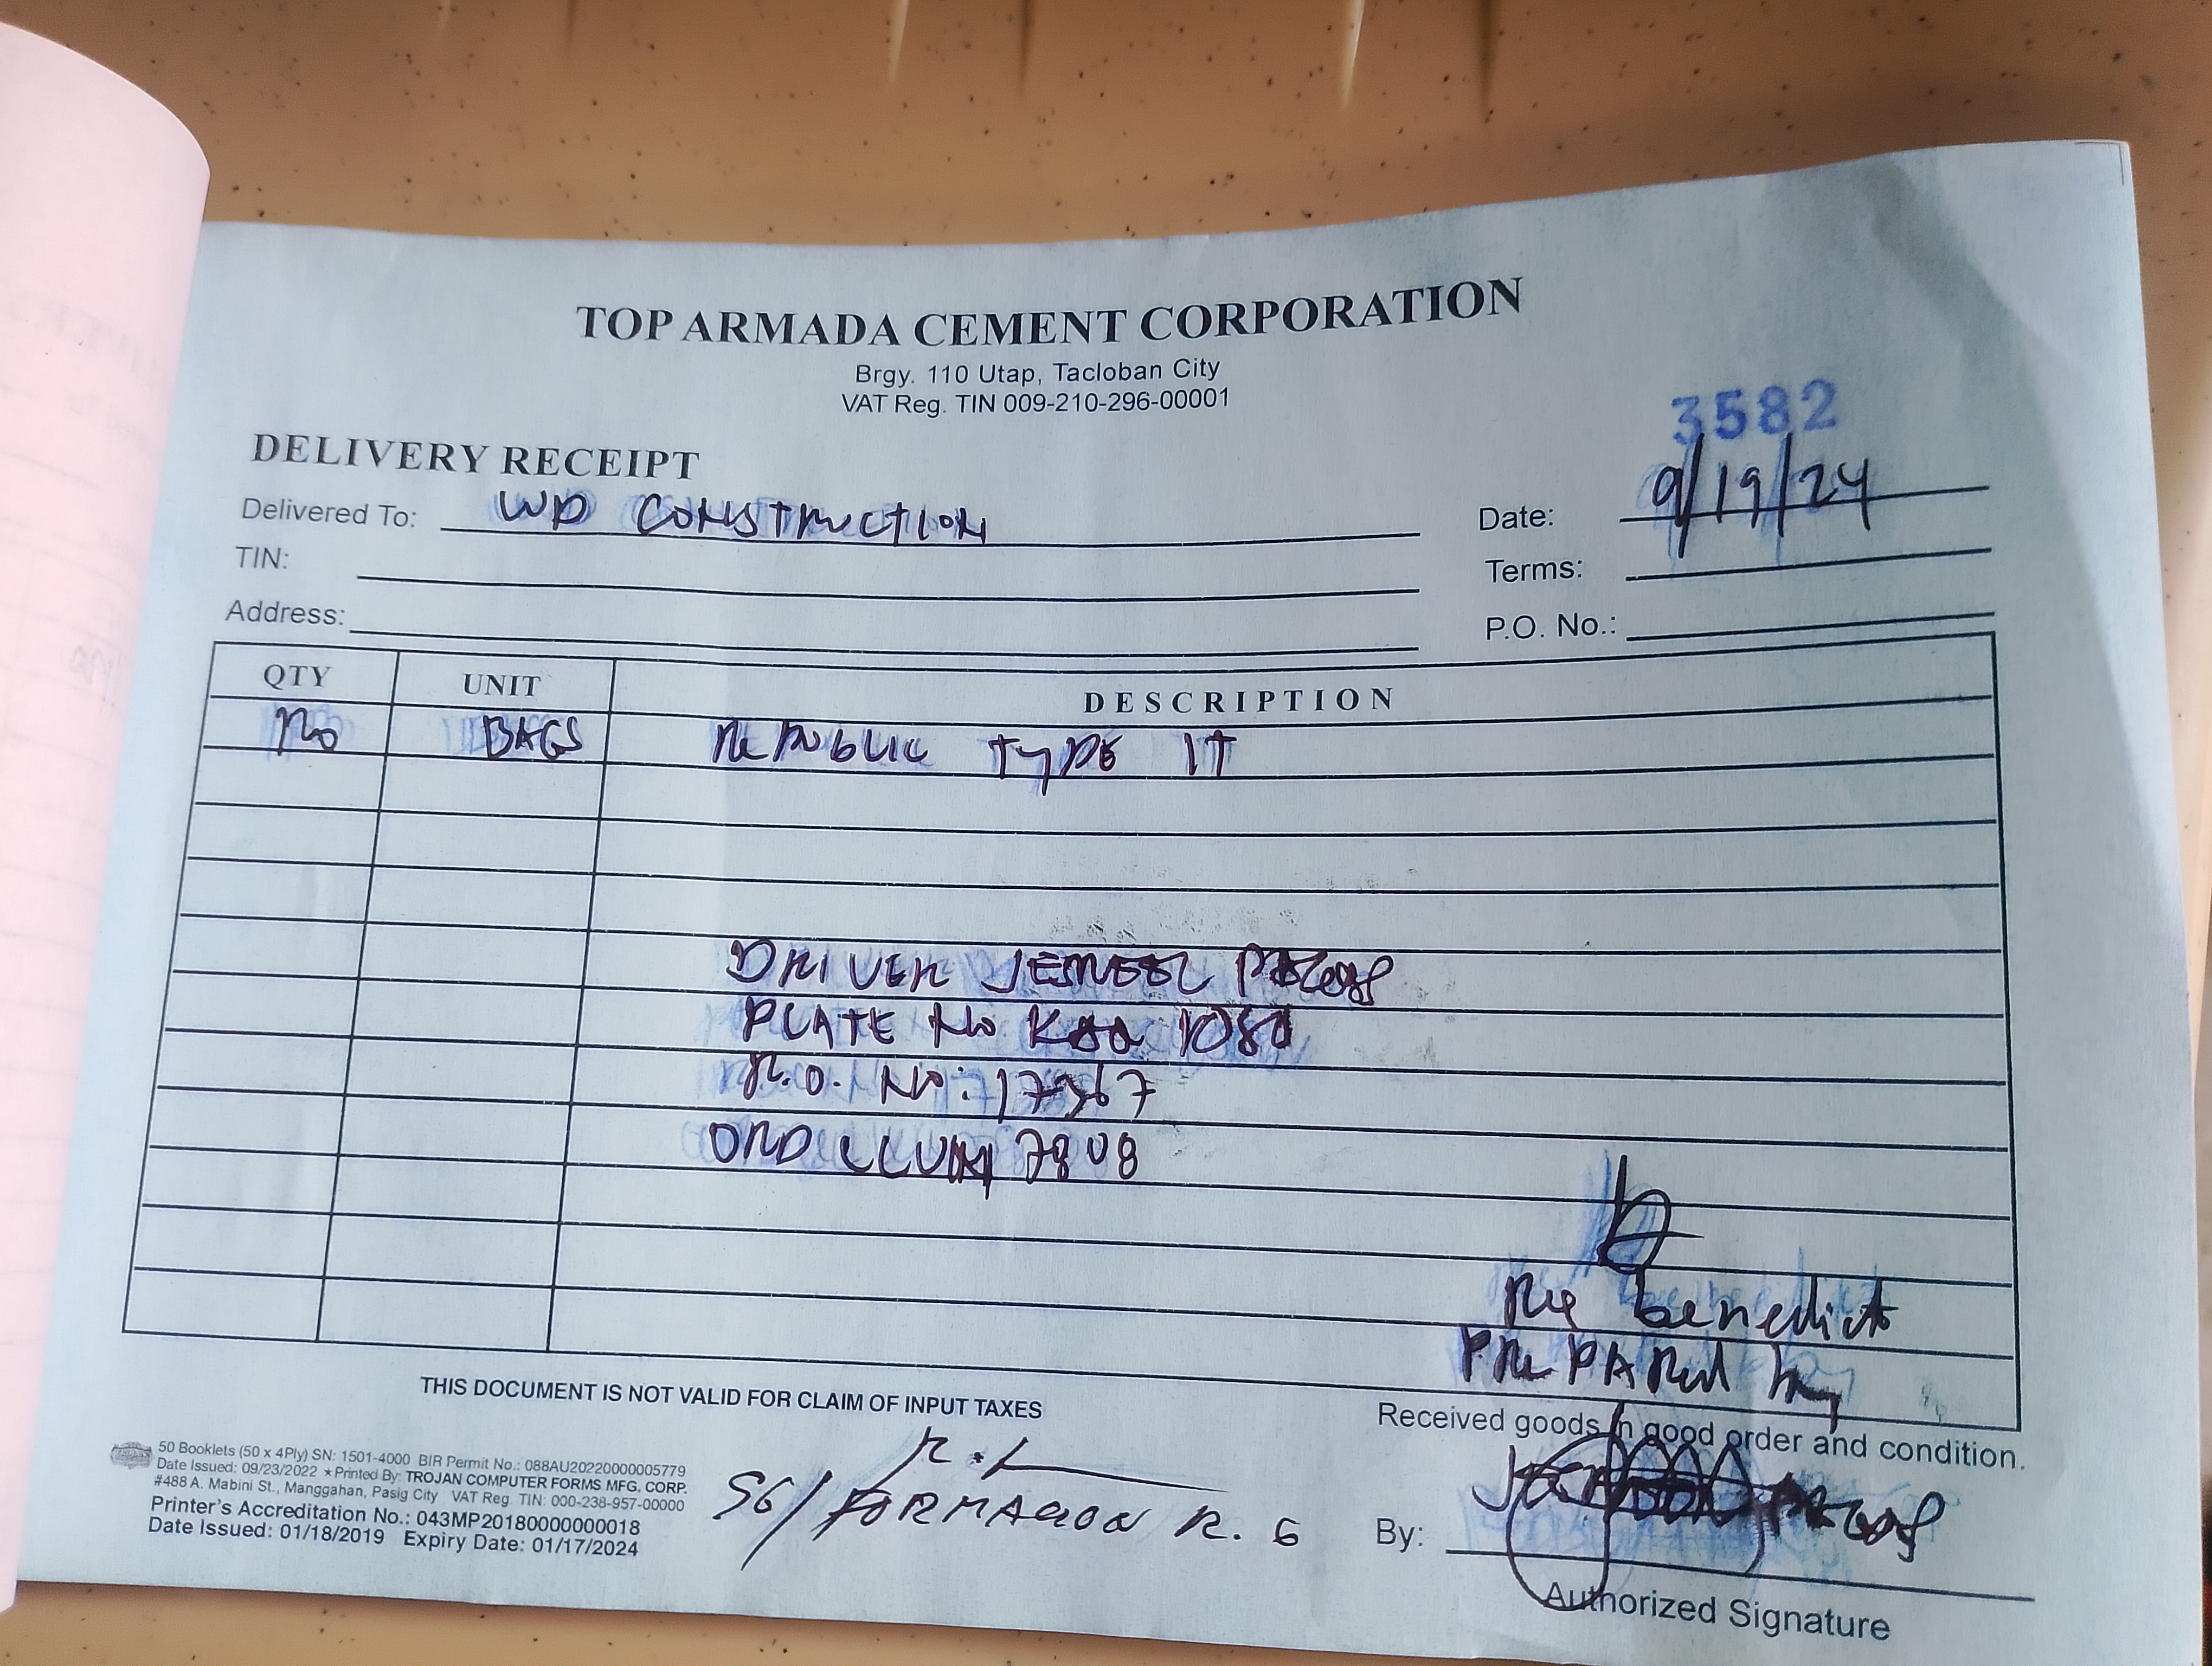 TOP ARMADA CEMENT CORPORATION
Brgy. 110 Utap, Tacloban City
VAT Reg. TIN 009-210-296-00001
3582
DELIVERY RECEIPT
Delivered To: WD CONSTRUCTION
Date: 9/19/24
TIN:
Terms:
Address:
P.O. No.:
QTY UNIT DESCRIPTION
BAGS REPUBLIC TYPE 1T
DRIVER
PLATE No
R.O. No: 17367
ORD 7808
benedict
PREPARED by
THIS DOCUMENT IS NOT VALID FOR CLAIM OF INPUT TAXES
Received goods in good order and condition.
50 Booklets (50 x 4Ply) SN: 1501-4000 BIR Permit No.: 088AU20220000005779
Date Issued: 09/23/2022 ★Printed By: TROJAN COMPUTER FORMS MFG. CORP.
#488 A. Mabini St., Manggahan, Pasig City VAT Reg. TIN: 000-238-957-00000
Printer's Accreditation No.: 043MP20180000000018
Date Issued: 01/18/2019 Expiry Date: 01/17/2024
SG/ FORMACION R. G
By:
Authorized Signature